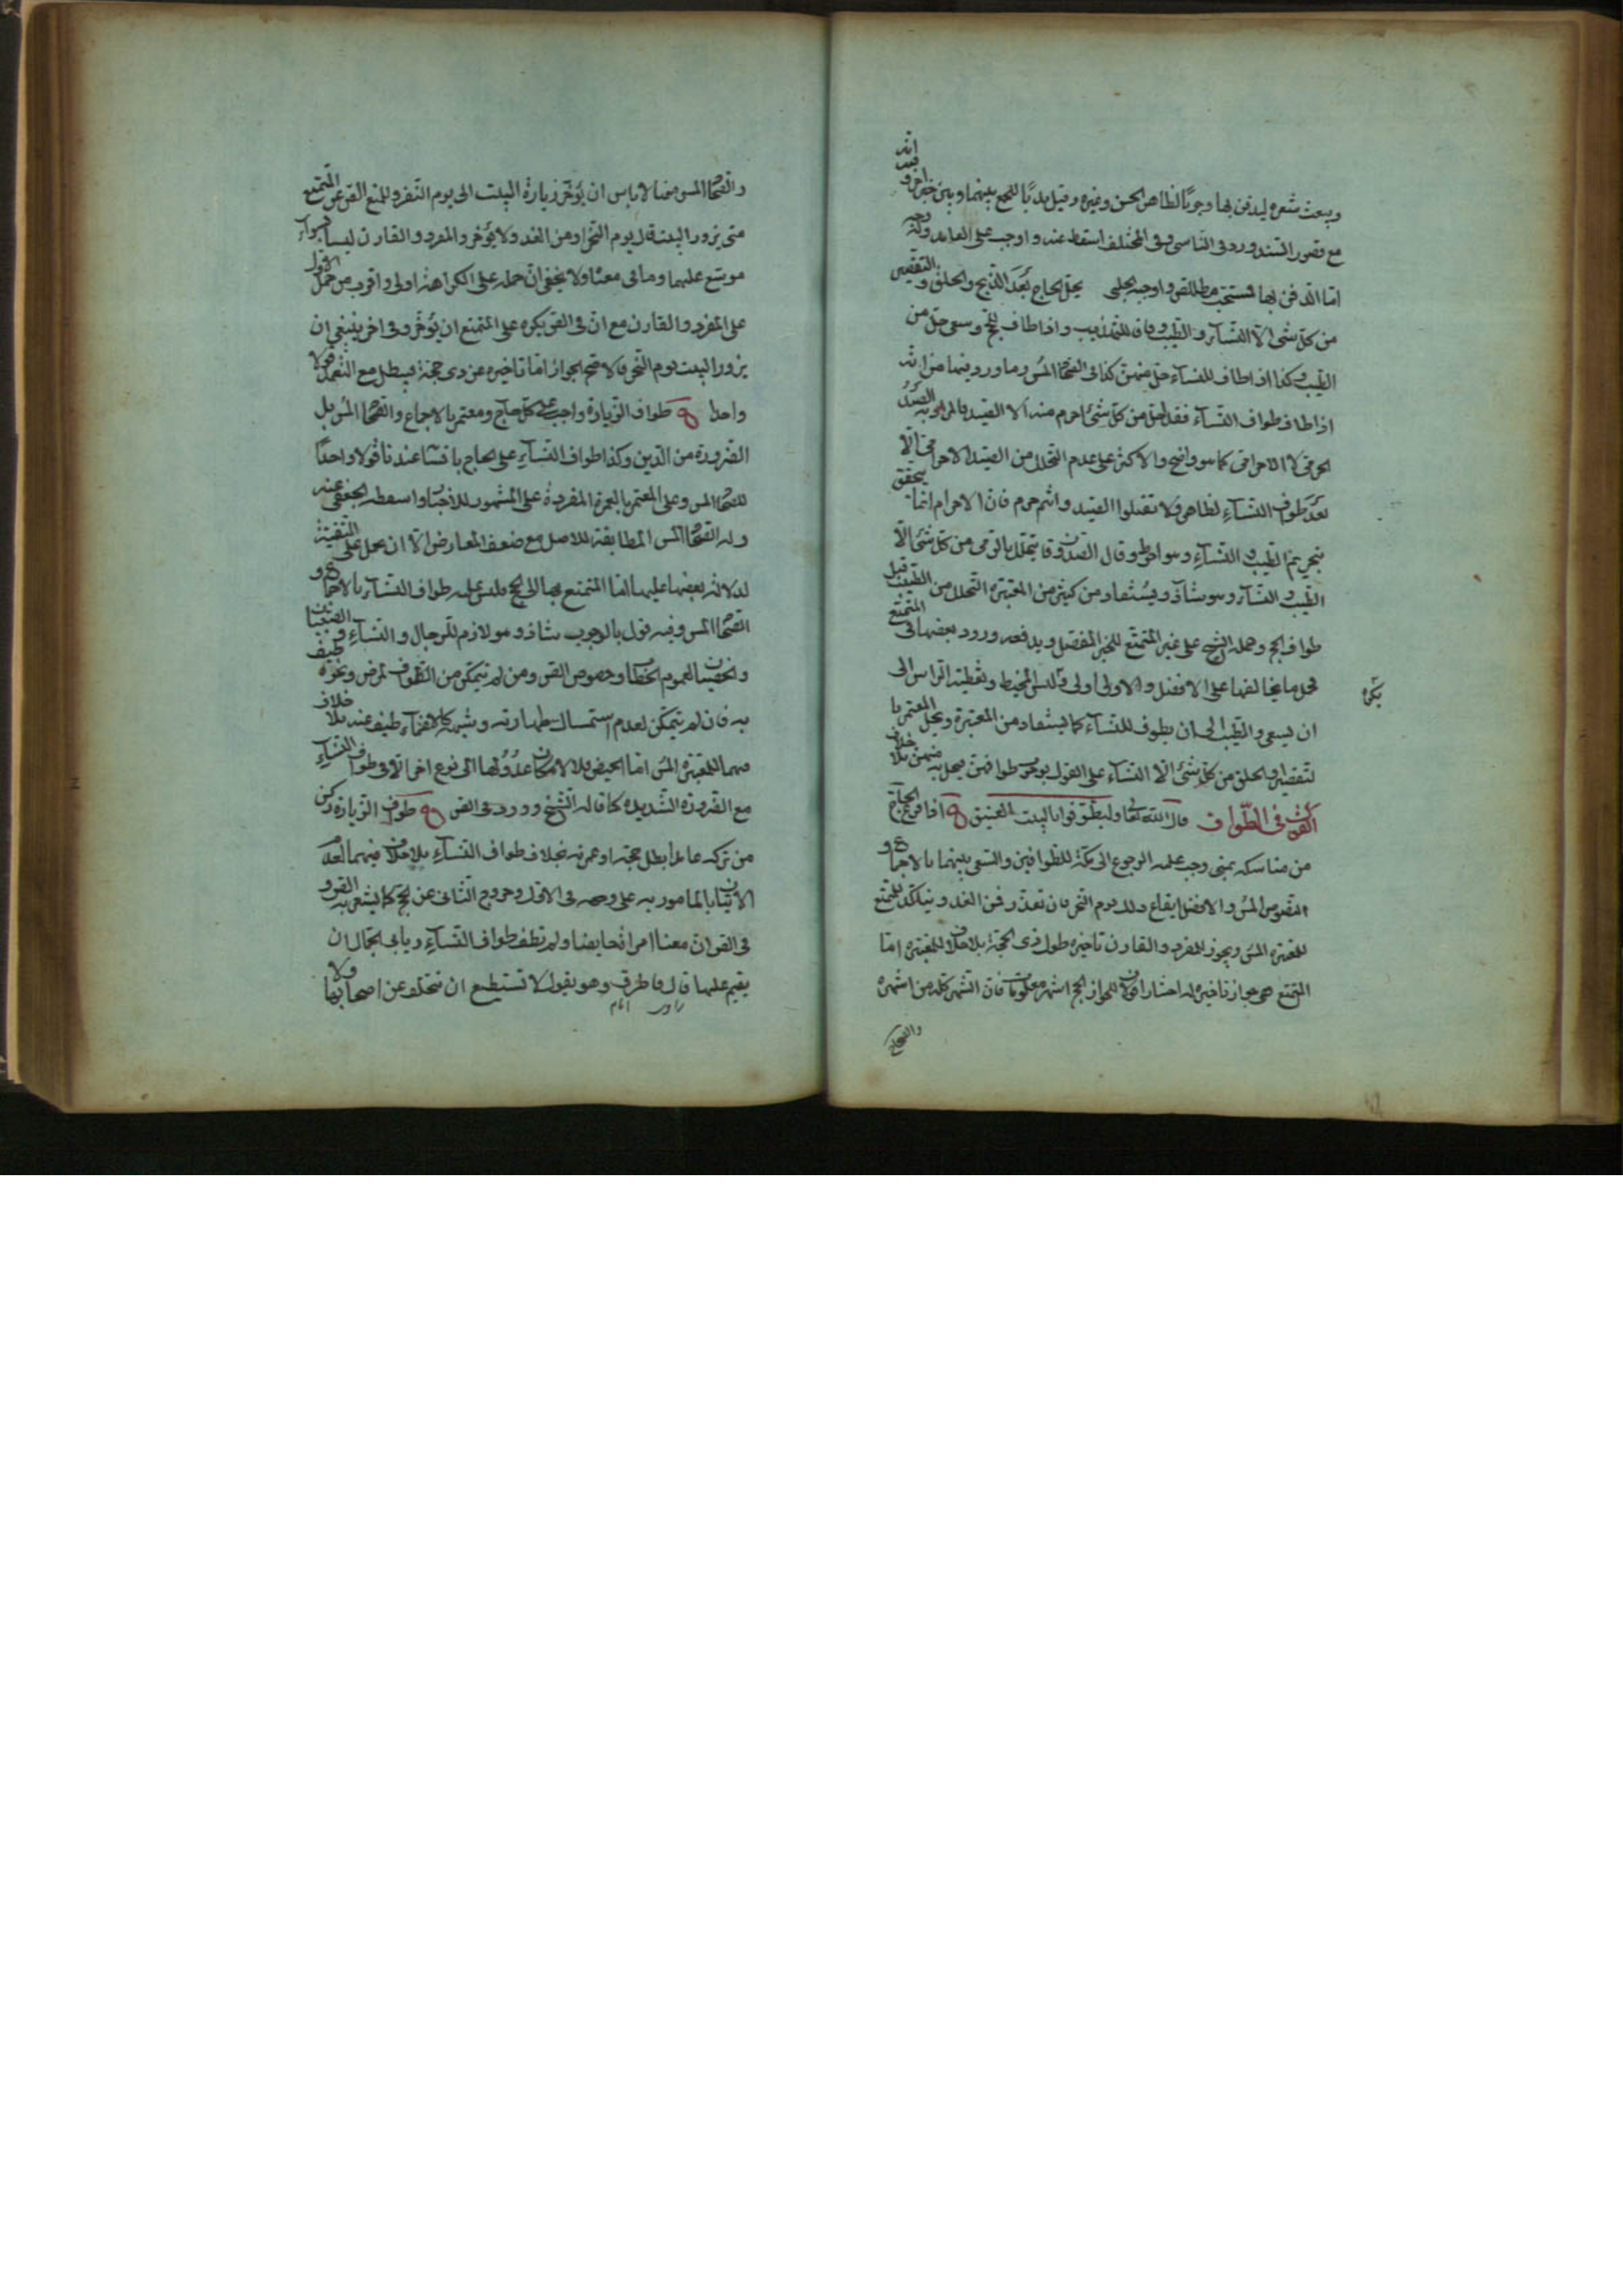 ويبعث شعره ليدفن بها وجوبا لظاهر الحسن وغيره وقيل ندبا للجمع بينهما وبين خبر اخر وفيه انه
مع قصور السند ورد في الناسي وفي المختلف اسقطه عنه واوجب على العامد وله وجه
اما الدفن بها فمستحب مطلقا للنص واوجبه الحلبي يحل الحاج بعد الذبح والحلق والتقصير
من كل شئ الا النساء والطيب واذا طاف للحج وسعى حل من
الطيب وكذا اذا طاف للنساء حل منهن كذا في الصحاح المس وما ورد فيها من انه
اذا طاف طواف النساء فقد احل من كل شئ احرم منه الا الصيد فالمراد به الصيد
الحرمي لا الاحرامي كما هو واضح والاكثر على عدم التحلل من الصيد الاحرامي الا
بعد طواف النساء لظاهر ولا تقتلوا الصيد وانتم حرم فان الاحرام انما يتحقق
بتحريم الطيب والنساء وهو احوط وقال الصدوقان يتحلل بالرمي من كل شئ الا
الطيب والنساء وهو شاذ ويستفاد من كثير من المعتبرة التحلل من الطيب قبل
طواف الحج وحمله الشيخ على غير المتمتع للخبر المفصل ويدفعه ورود بعضها في المتمتع
فحمل ما يخالفها على الافضل والاولى اولى ويكره لبس المخيط وتغطية الراس الى
ان يسعى والطيب الى ان يطوف للنساء كما يستفاد من المعتبرة ويحل المعتمر با
لتقصير والحلق من كل شئ الا النساء على القول بوجوب طوافهن فيحل به منهن بلا خلاف
القول في الطواف قال الله تعالى وليطوفوا بالبيت العتيق ه اذا فرغ الحاج
من مناسكه بمنى وجب عليه الرجوع الى مكة للطوافين والسعي بينهما بالاجماع و
النصوص المس والافضل ايقاع ذلك يوم النحر فان تعذر فمن الغد ويتاكد للمتمتع
للمعتبرة المس ويجوز للمفرد والقارن تاخيره طول ذي الحجة بلا خلاف للمعتبرة اما
المتمتع ففي جواز تاخيره له اختيارا قولان للجواز الحج اشهر معلومات فان الشهر كله من اشهره
والصحاح
يكره
والصحاح المس منها لا باس ان يؤخر زيارة البيت الى يوم النفر وللمنع النص عن المتمتع
متى يزور البيت قال يوم النحر او من الغد ولا يؤخر والمفرد والقارن ليسا بسواء
موسع عليهما وما في معناه ولا يخفى ان حمله على الكراهة اولى واقرب من حمل الاول
على المفرد والقارن مع ان في النص يكره على المتمتع ان يؤخر وفي اخر ينبغي ان
يزور البيت يوم النحر فالاصح الجواز اما تاخيره عن ذي حجة فيبطل مع التعمد قولا
واحدا ه طواف الزيارة واجب على كل حاج ومعتمر بالاجماع والصحاح المس بل
الضرورة من الدين وكذا طواف النساء على الحاج باقسامه عندنا قولا واحدا
للصحاح المس وعلى المعتمر بالعمرة المفردة على المشهور للاخبار واسقطه الجعفي عنه
وله الصحاح المس المطابقة للاصل مع ضعف المعارض الا ان يحمل على التقية
لدلالة بعضها عليها اما المتمتع بها الى الحج فليس عليه طواف النساء بالاجماع و
الصحاح المس وفيه قول بالوجوب شاذ وهو لازم للرجال والنساء والصبيان
والخصيان لعموم الخطاب وخصوص النص ومن لم يتمكن من الطواف لمرض ونحوه طيف
به فان لم يتمكن لعدم استمساك طهارته وشبهه كالاغماء طيف عنه بلا خلاف
فيهما للمعتبرة المس اما الحيض فلا لامكان عدولها الى نوع اخر الا في طواف النساء
مع الضرورة الشديدة كما قاله الشيخ وورد في النص ه طواف الزيارة ركن
من تركه عامدا بطل حجه او عمرته بخلاف طواف النساء بلا خلاف فيهما لعدم
الاتيان بالمامور به على وجهه في الاول وخروج الثاني عن الحج كما يشعر به النص و
في النص ان معنا امراة حايضا ولم تطف طواف النساء ويابى الجمال ان
يقيم عليها قال فاطرق وهو يقول لا تستطيع ان تتخلف عن اصحابها ولا
راوى امام